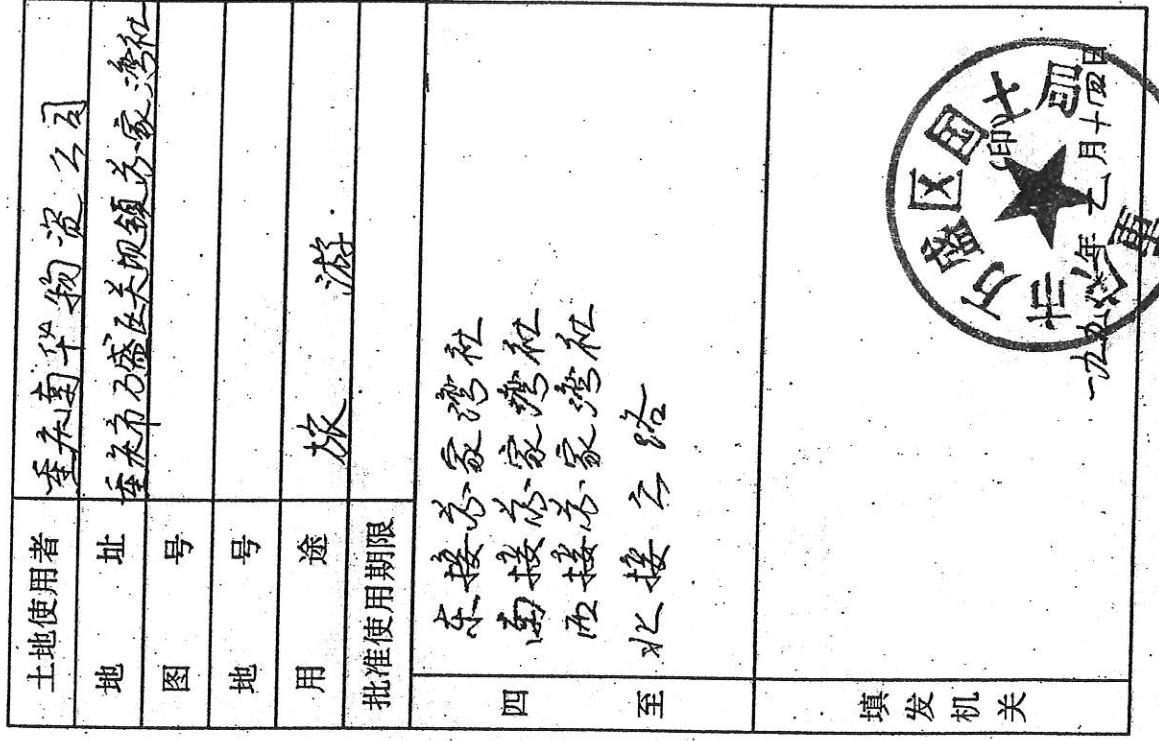 土地使用者 重庆南华物资公司
地址 重庆市万盛区关坝镇苏家湾社
图号
地号
用途 旅游
批准使用期限
四至
东接苏家湾社
南接苏家湾社
西接苏家湾社
北接公路
填发机关
市万盛区国土局
(印)
年 月十四日